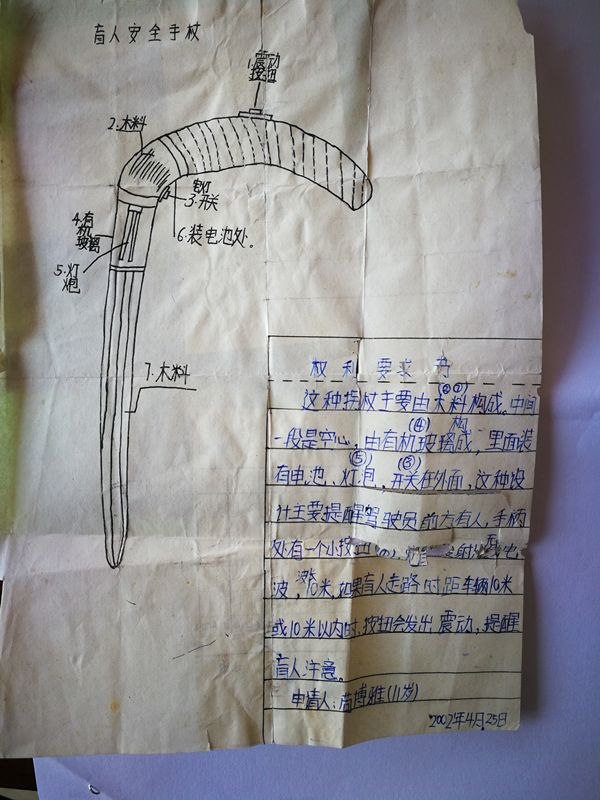 盲人安全手杖
1.震动
按钮
2.木料
电灯
3.开关
4.有
机
玻璃
6.装电池处。
5.灯
炮
7.木料
权利要求书
这种拐杖主要由木料构成。中间
(②⑦)
一段是空心,由有机玻璃构成,里面装
(④)
有电池、灯泡,开关在外面,这种设
(⑤) (③)
计主要提醒驾驶员前方有人,手柄
处有一个小按
射 电
波, 10米,如果盲人走路时距车辆10米
或10米以内时,按钮会发出震动,提醒
盲人注意。
申请人: 博雅(11岁)
2002年4月25日